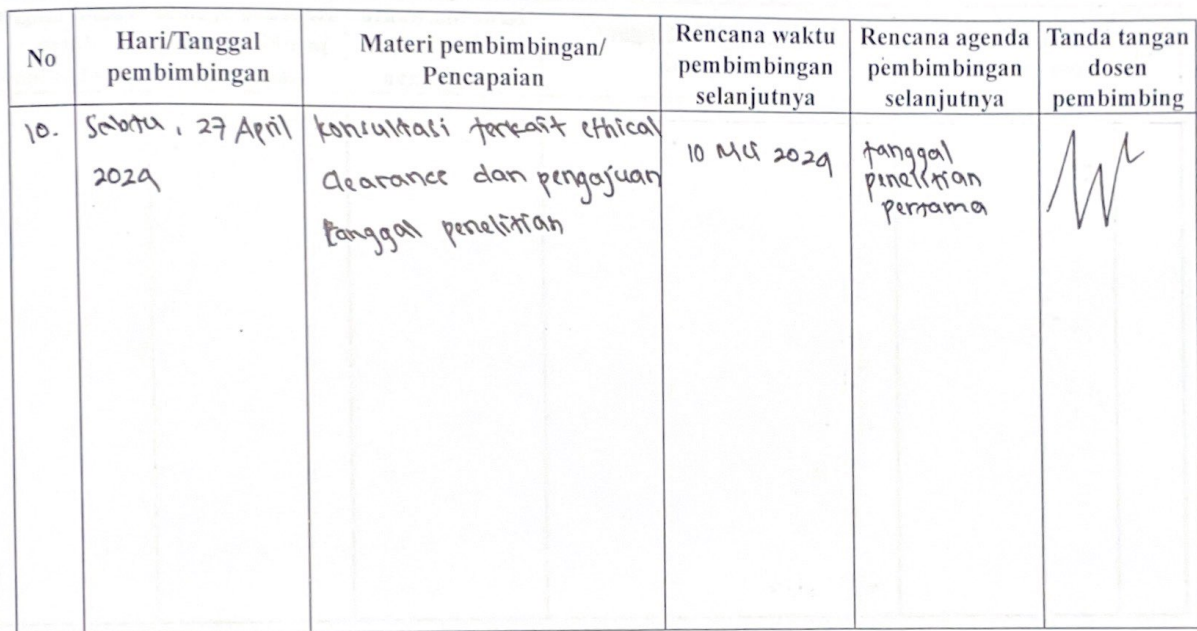 No
Hari/Tanggal
pembimbingan
Materi pembimbingan/
Pencapaian
Rencana waktu
pembimbingan
selanjutnya
Rencana agenda
pembimbingan
selanjutnya
Tanda tangan
dosen
pembimbing
10.
Sabtu, 27 April
2024
konsultasi terkait ethical
clearance dan pengajuan
tanggal penelitian
10 Mei 2024
tanggal
penelitian
pertama